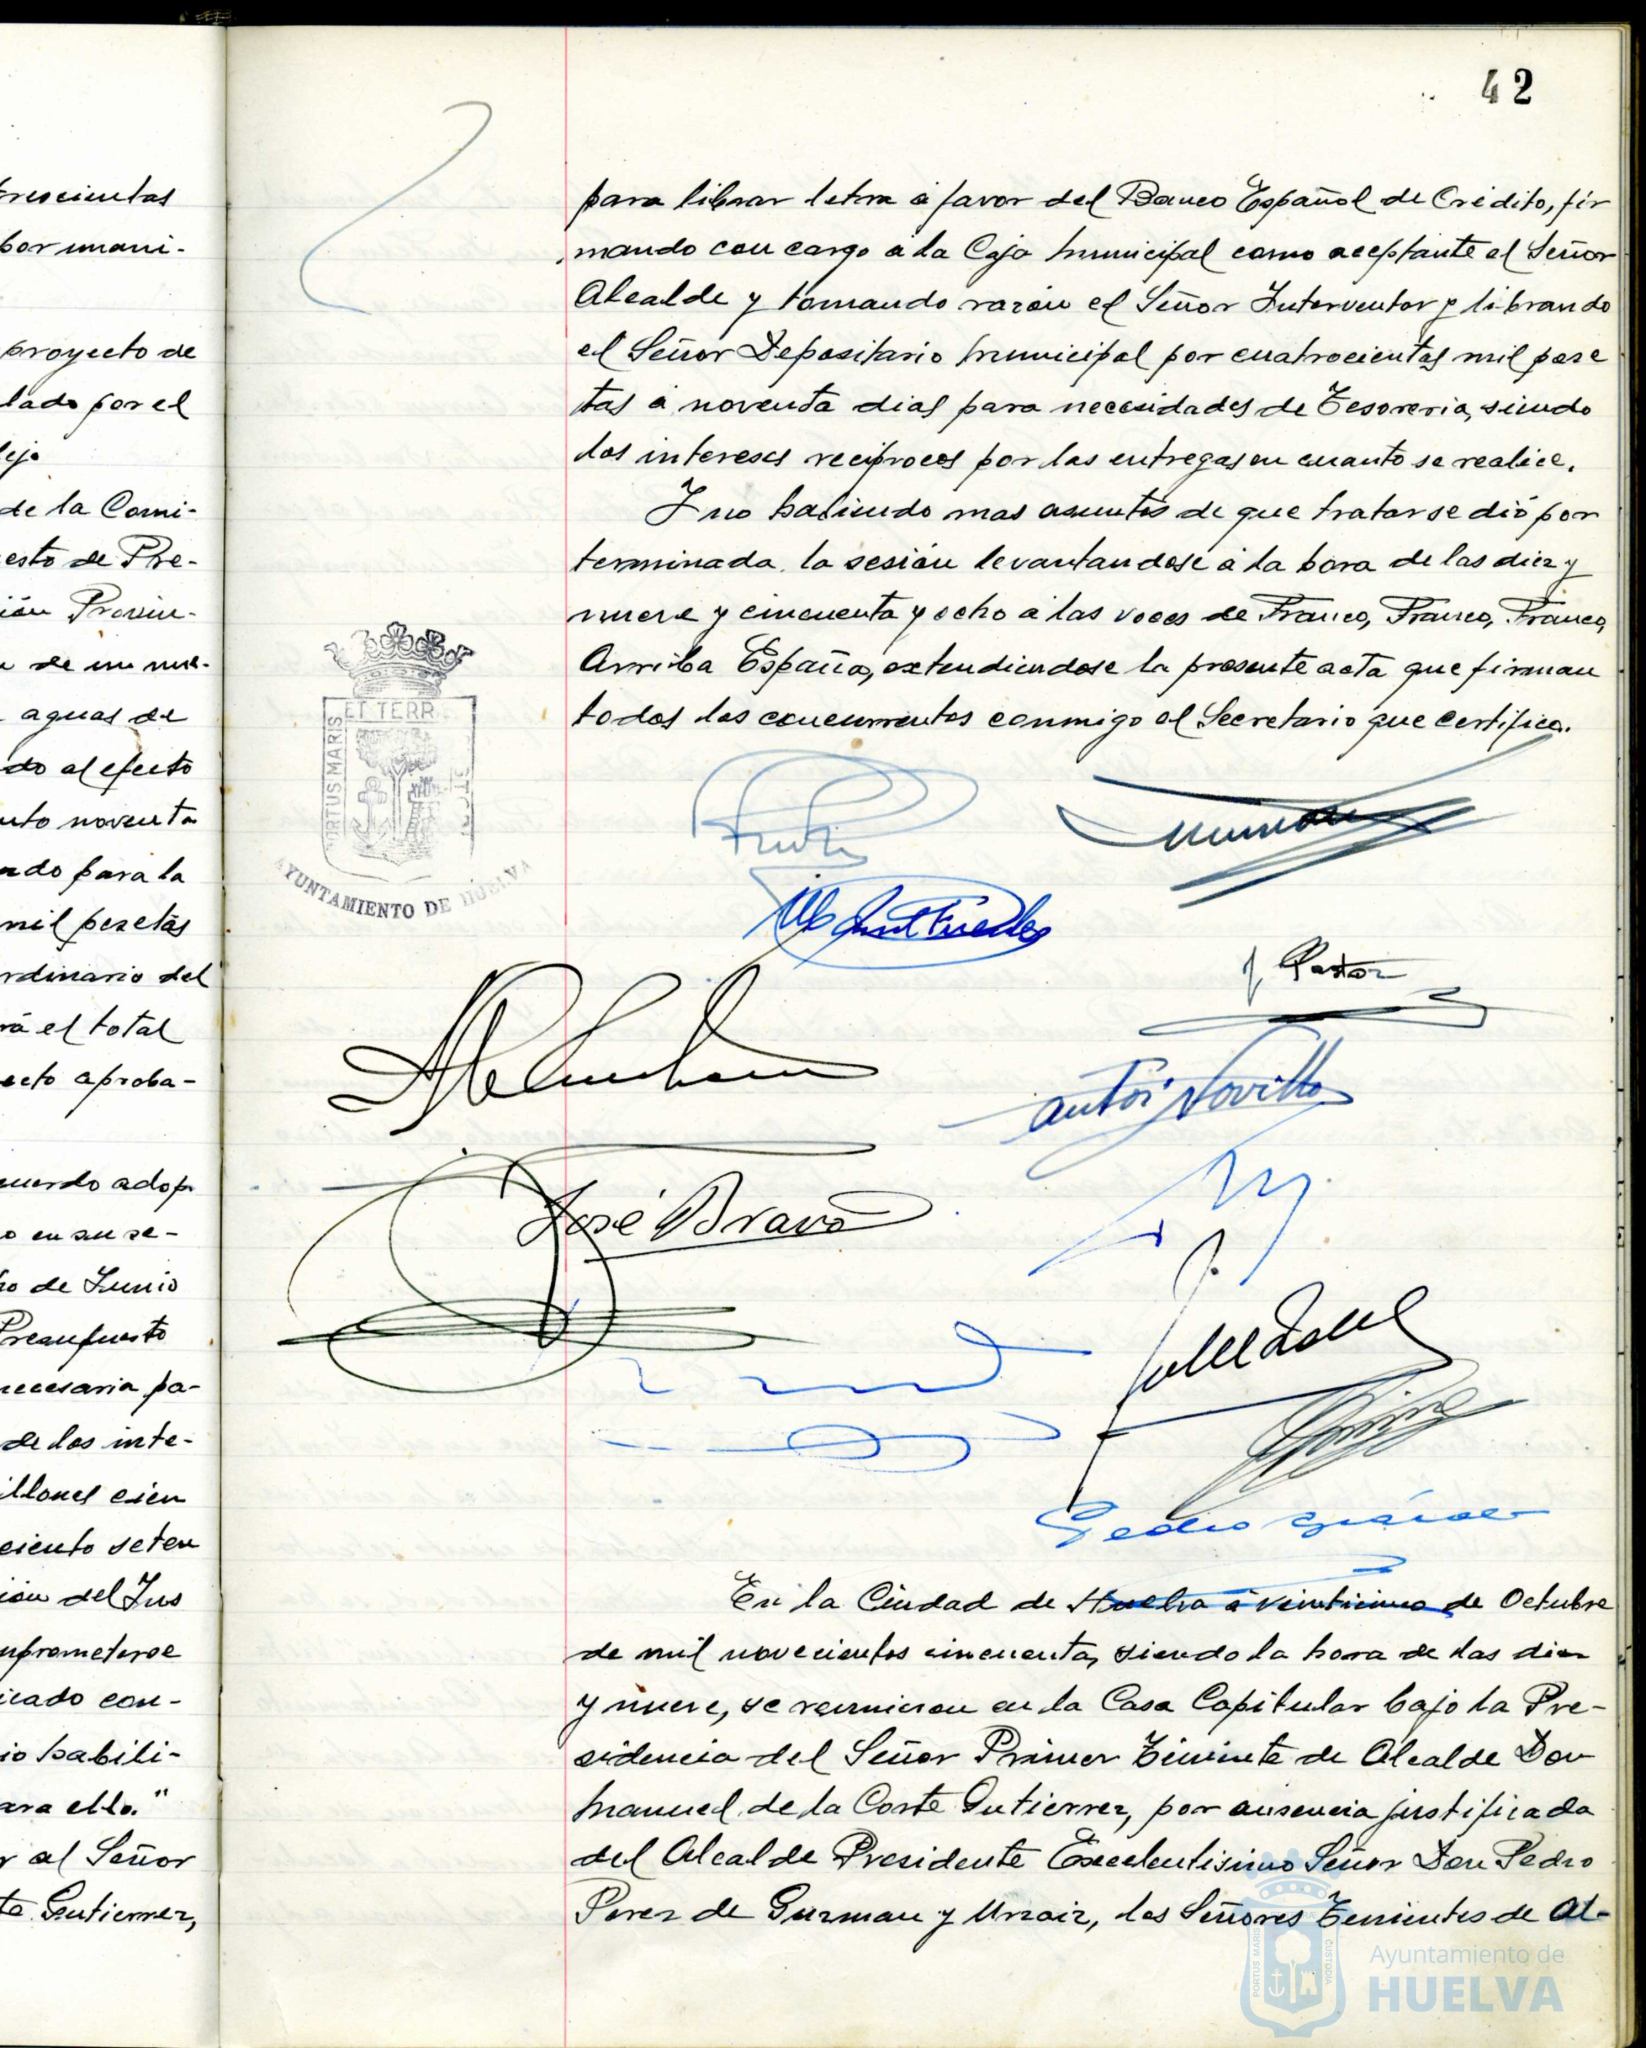 42
trescientas
por unani-
proyecto de
lado por el
de la Comi-
esto de Pre-
ión Provin-
de un nue-
aguas de
do al efecto
nto noventa
ndo para la
mil pesetas
rdinario del
rá el total
ecto aproba-
uerdo adop
o en su se-
ho de Junio
Presupuesto
necesaria pa-
de los inte-
illones cien
ciento seten
ión del Ins
mprometerse
icado con-
io habili-
ara ello."
r al Señor
te Gutierrez,
para librar letra á favor del Banco Español de Crédito, fir
mando con cargo a la Caja Municipal como aceptante el Señor
Alcalde y tomando razón el Señor Interventor y librando
el Señor Depositario Municipal por cuatrocientas mil pese
tas á noventa dias para necesidades de Tesoreria, siendo
los intereses reciprocos por las entregas en cuanto se realice.
Y no habiendo mas asuntos de que tratar se dió por
terminada la sesión levantandose á la hora de las diez y
nueve y cincuenta y ocho á las voces de Franco, Franco, Franco,
Arriba España, extendiendose la presente acta que firman
todos los concurrentes conmigo el Secretario que certifico.
ET TERR
PORTUS MARIS
AYUNTAMIENTO DE HUELVA
J. Pastor
José Bravo
En la Ciudad de Huelva á veinticinco de Octubre
de mil novecientos cincuenta, siendo la hora de las diez
y nueve, se reunieron en la Casa Capitular bajo la Pre-
sidencia del Señor Primer Teniente de Alcalde Don
Manuel de la Corte Gutierrez, por ausencia justificada
del Alcalde Presidente Excelentisimo Señor Don Pedro
Perez de Guzman y Urzaiz, los Señores Tenientes de Al-
PORTUS MARIS
CUSTODIA
Ayuntamiento de
HUELVA